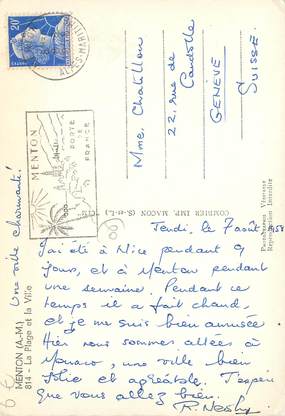 20F
MENTON
PORTE
DE
FRANCE
Mme. Chatillon
22, rue de
Candolle
GENÈVE
SUISSE.
COMBIER IMP. MACON (S.-et-L.) "CIM"
Photographie Véritable
Reproduction Interdite
MENTON (A.-M.)
814 - La Plage et la Ville
Une ville charmante!
Jeudi, le 7 août 1958
J'ai été à Nice pendant 9
jours, et à Menton pendant
une semaine. Pendant ce
temps il a fait chaud,
et je me suis bien amusée
Hier nous sommes allées à
Monaco, une ville bien
jolie et agréable. J'espère
que vous allez bien.